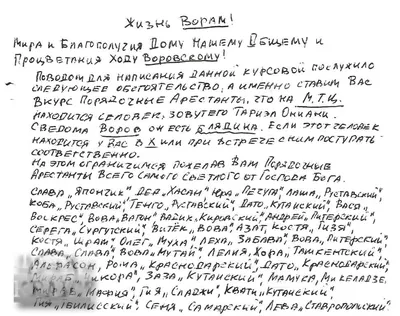 Жизнь Ворам!
Мира и Благополучия Дому Нашему Общему и
Процветания Ходу Воровскому!
Поводом для написания данной курсовой послужило
следующее обстоятельство, а именно ставим Вас
вкурс Порядочные Арестанты, что на М.Т.Ц.
находится человек, зовут его Тариэл Ониани.
Сведома Воров он есть Блядина. Если этот человек
находится у Вас в Х или при встрече с ним поступать
соответственно.
На этом ограничимся пожелав Вам Порядочные
Арестанты Всего Самого Светлого от Господа Бога.
Слава „Япончик" Дед „Хасан" Юра „Пичуга" Лаша „Руставский",
Коба „Руставский" Тенго „Руставский", Дато „Кутаинский" Вася „
Воскрес" Вова „Вагон" Андрей „Питерский",
Серега „Сургутский" Витёк „Вова" Азат, Костя „Гизя"
Костя „Шрам" Олег „Муха" Леха „Забава" Вова „Питерский",
Слава „Слава" Вова „Мутай" Лелия, Хора „Ташкентский"
Рома „Краснодарский", Дато „Краснодарский",
Заза „Кутаинский" Мамука, Микеладзе,
„Мафия", Гия „Сладжи", Квати „Кутаинский"
Гия „Тбилисский" Сеня „Самарский", Лева „Ставропольский"